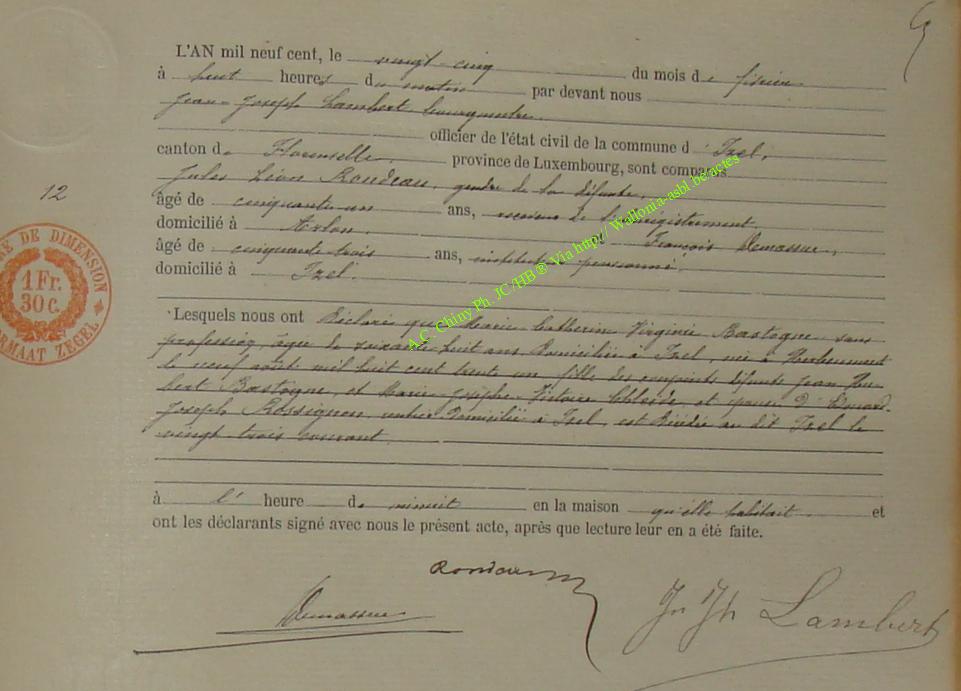 L'AN mil neuf cent, le vingt-cinq du mois de février
à huit heures du matin par devant nous
Jean-Joseph Lambert bourgmestre
officier de l'état civil de la commune d'Izel,
canton de Florenville, province de Luxembourg, sont comparus
Jules Léon Rondeau, gendre de la défunte,
âgé de cinquante-un ans, receveur de l'enregistrement
domicilié à Arlon. et François Demasure,
âgé de cinquante trois ans, instituteur pensionné,
domicilié à Izel
12
TIMBRE DE DIMENSION
1 Fr.
30 c.
FORMAAT ZEGEL
Lesquels nous ont déclaré que Marie Catherin Virginie Bastogne, sans
profession, âgée de soixante huit ans domiciliée à Izel, née à Herbeumont
le neuf août mil huit cent trente un, fille des conjoints défunts Jean Hu-
bert Bastogne, et Marie-Josèphe Victoire et épouse d'
Joseph Rossignon, domicilié à Izel, est décédée au dit Izel le
vingt-trois courant.
à l' heure de minuit en la maison qu'elle habitait. et
ont les déclarants signé avec nous le présent acte, après que lecture leur en a été faite.
Rondeau
Demasure
Jn Jh Lambert
A.C. Chiny Ph. JC/HB ® Via http// Wallonia-asbl.be/actes